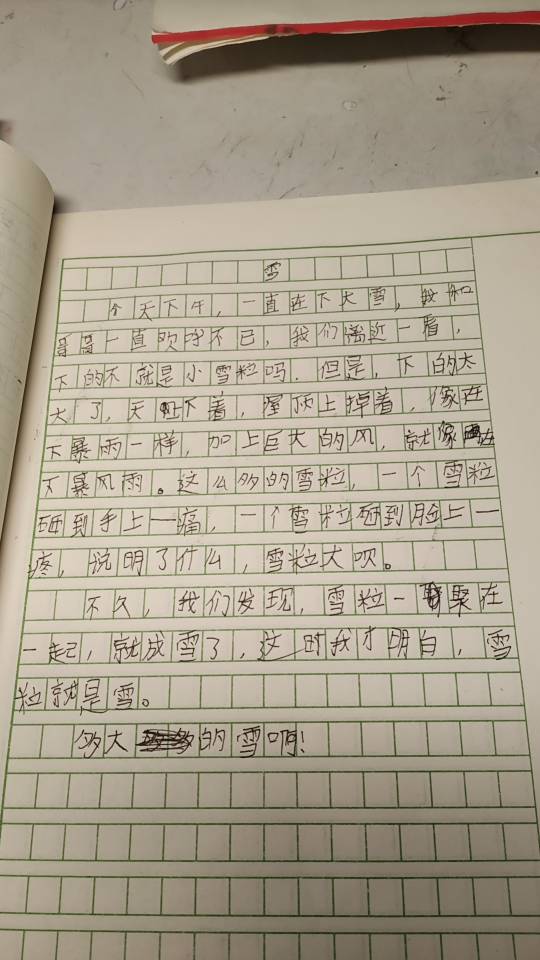 雪
个天下午，一直在下大雪，我和
哥哥一直欢呼不已，我们离近一看，
下的不就是小雪粒吗．但是，下的太
大了，天上下着，屋顶上掉着，像在
下暴雨一样，加上巨大的风，就像在
下暴风雨。这么多的雪粒，一个雪粒
砸到手上一痛，一个雪粒砸到脸上一
疼，说明了什么，雪粒大呗。
不久，我们发现，雪粒一聚在
一起，就成雪了，这时我才明白，雪
粒就是雪。
多大的雪啊！